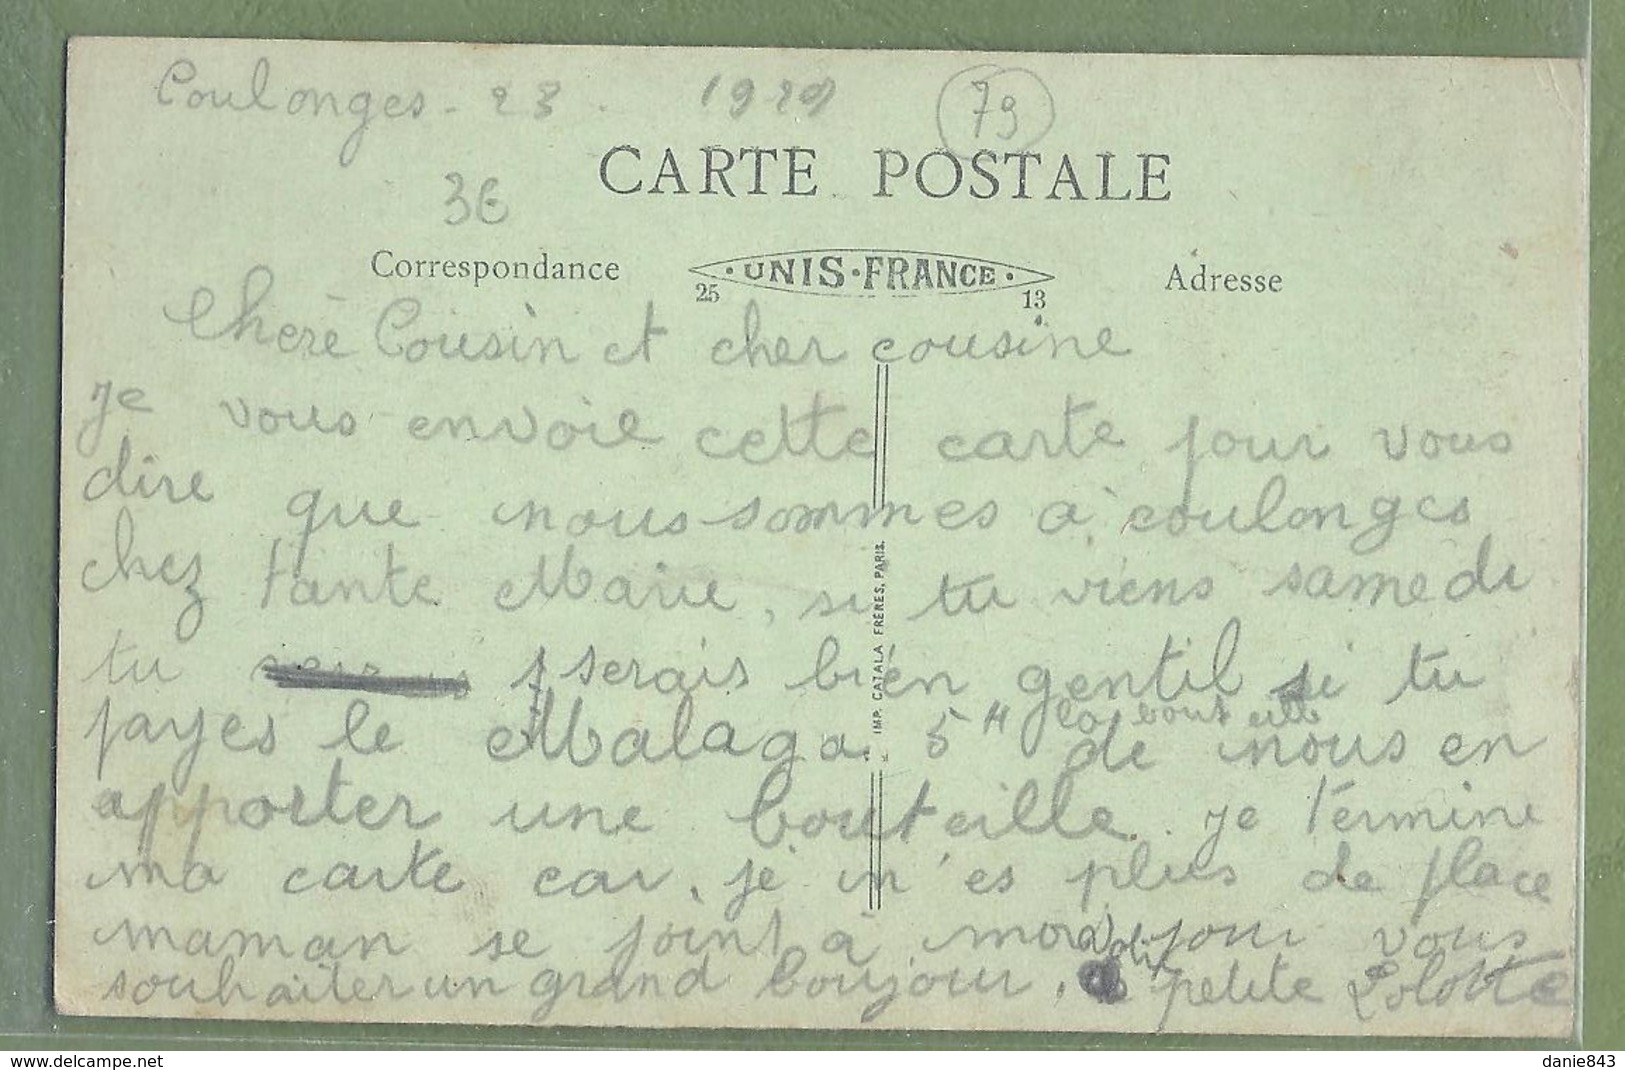 Coulonges - 23. 1929
79
CARTE POSTALE
3€
Correspondance
UNIS-FRANCE
25 13
Adresse
Chere Cousin et cher cousine
je vous envoie cette carte pour vous
dire que nous sommes à coulonges
chez tante Marie, si tu viens samedi
tu serais bien gentil si tu
la bouteille
payes le Malaga 5 H de nous en
apporter une bouteille. je términe
ma carte car je n'es plus de place
maman se joint à moi pour vous
souhaiter un grand boujour, petite Lolotte
IMP. CATALA FRÈRES, PARIS.
danie843